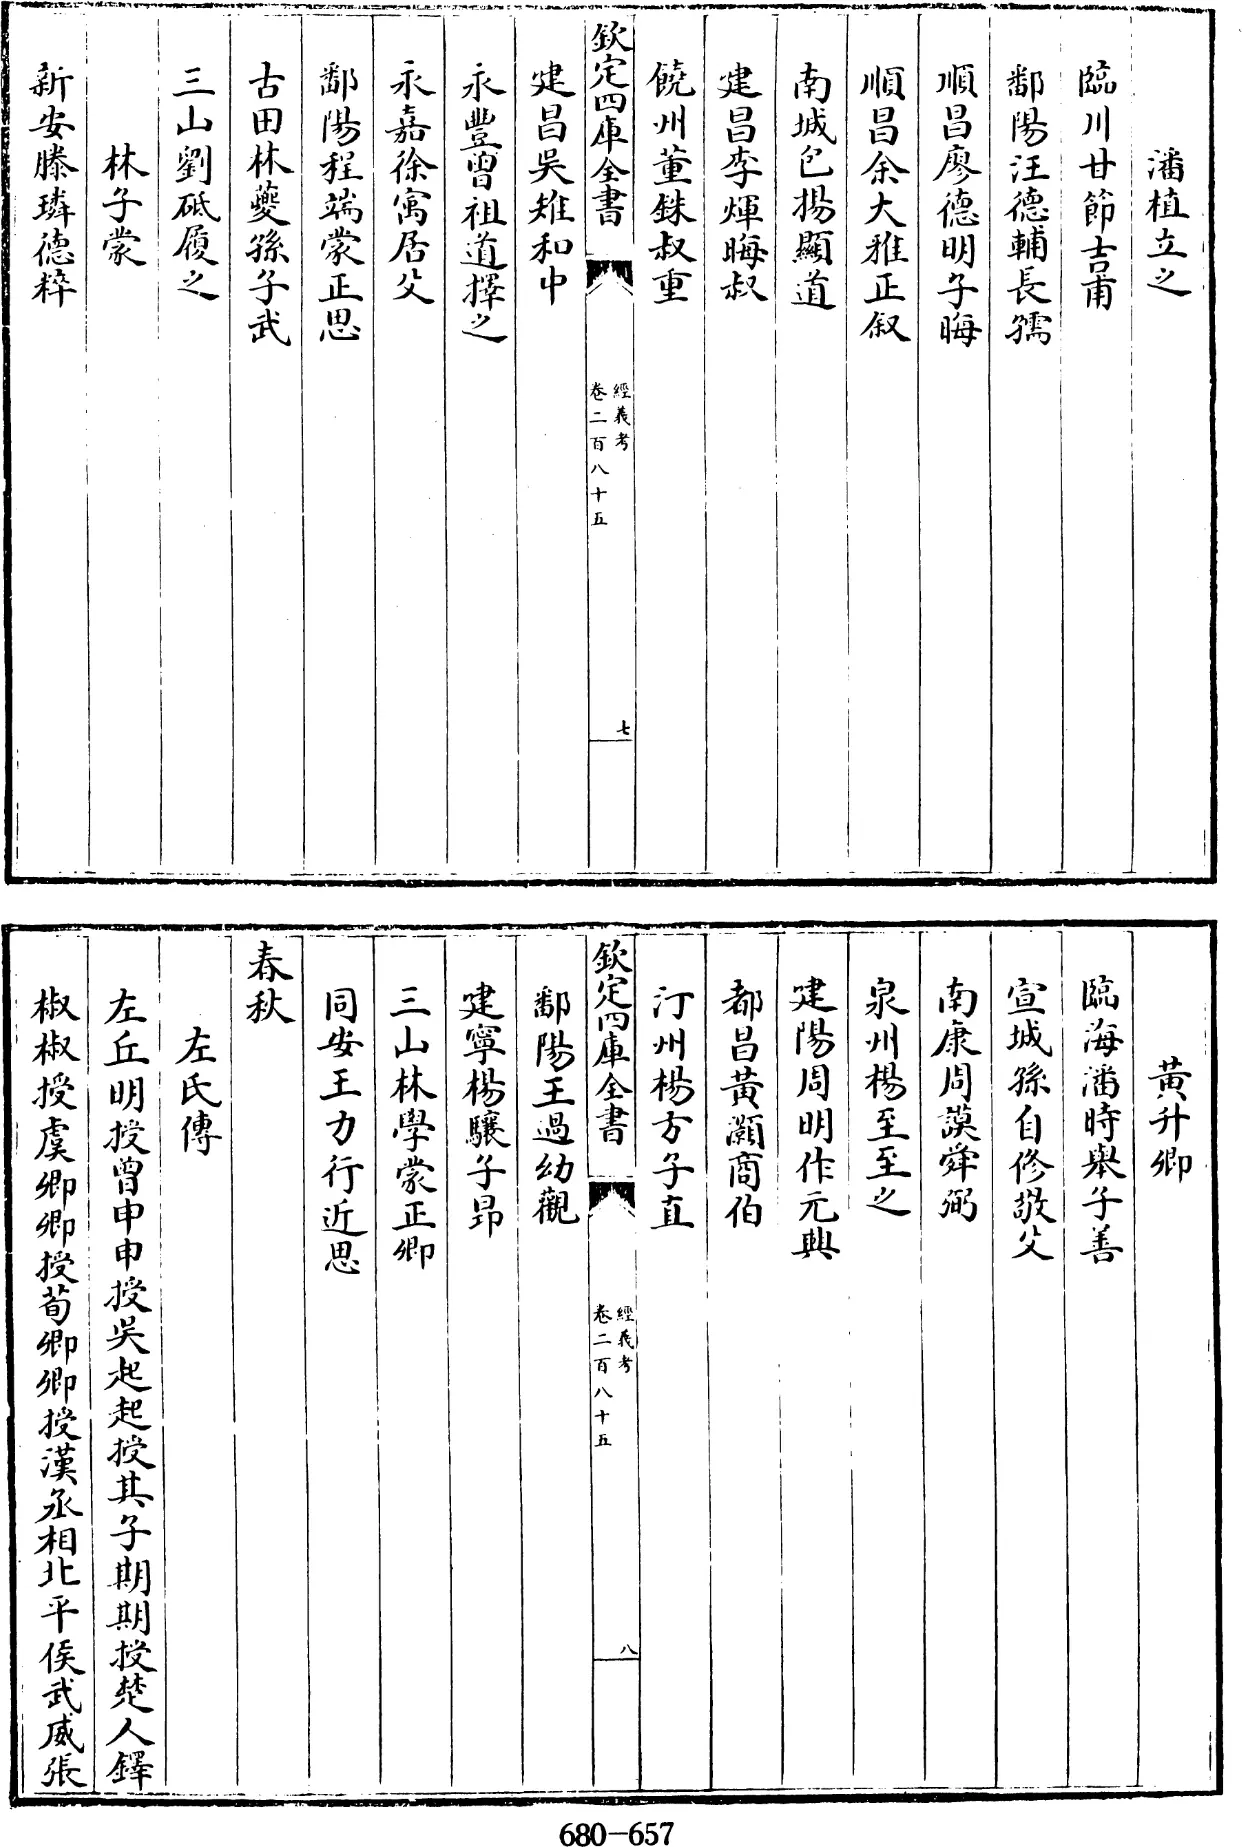 潘植立之
臨川甘節吉甫
鄱陽汪德輔長孺
順昌廖德明子晦
順昌余大雅正叔
南城包揚顯道
建昌李煇晦叔
饒州董銖叔重
欽定四庫全書
經義考
卷二百八十五
七
建昌吳雉和中
永豐曾祖道擇之
永嘉徐寓居父
鄱陽程端蒙正思
古田林夔孫子武
三山劉砥履之
林子蒙
新安滕璘德粹
黃升卿
臨海潘時舉子善
宣城孫自修敬父
南康周謨舜弼
泉州楊至至之
建陽周明作元興
都昌黃灝商伯
汀州楊方子直
欽定四庫全書
經義考
卷二百八十五
八
鄱陽王過幼觀
建寧楊驤子昻
三山林學蒙正卿
同安王力行近思
春秋
左氏傳
左丘明授曾申申授吳起起授其子期期授楚人鐸
椒椒授虞卿卿授荀卿卿授漢丞相北平侯武威張
680-657